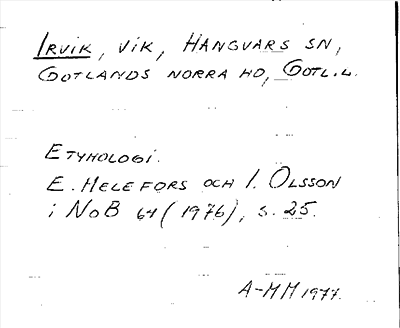 IRVIK, VIK, HANGVARS SN,
GOTLANDS NORRA HD, GOTL.L.
ETYMOLOGI.
E. HELEFORS OCH I. OLSSON
i NoB 64 (1976), s. 25.
A-MM 1977.